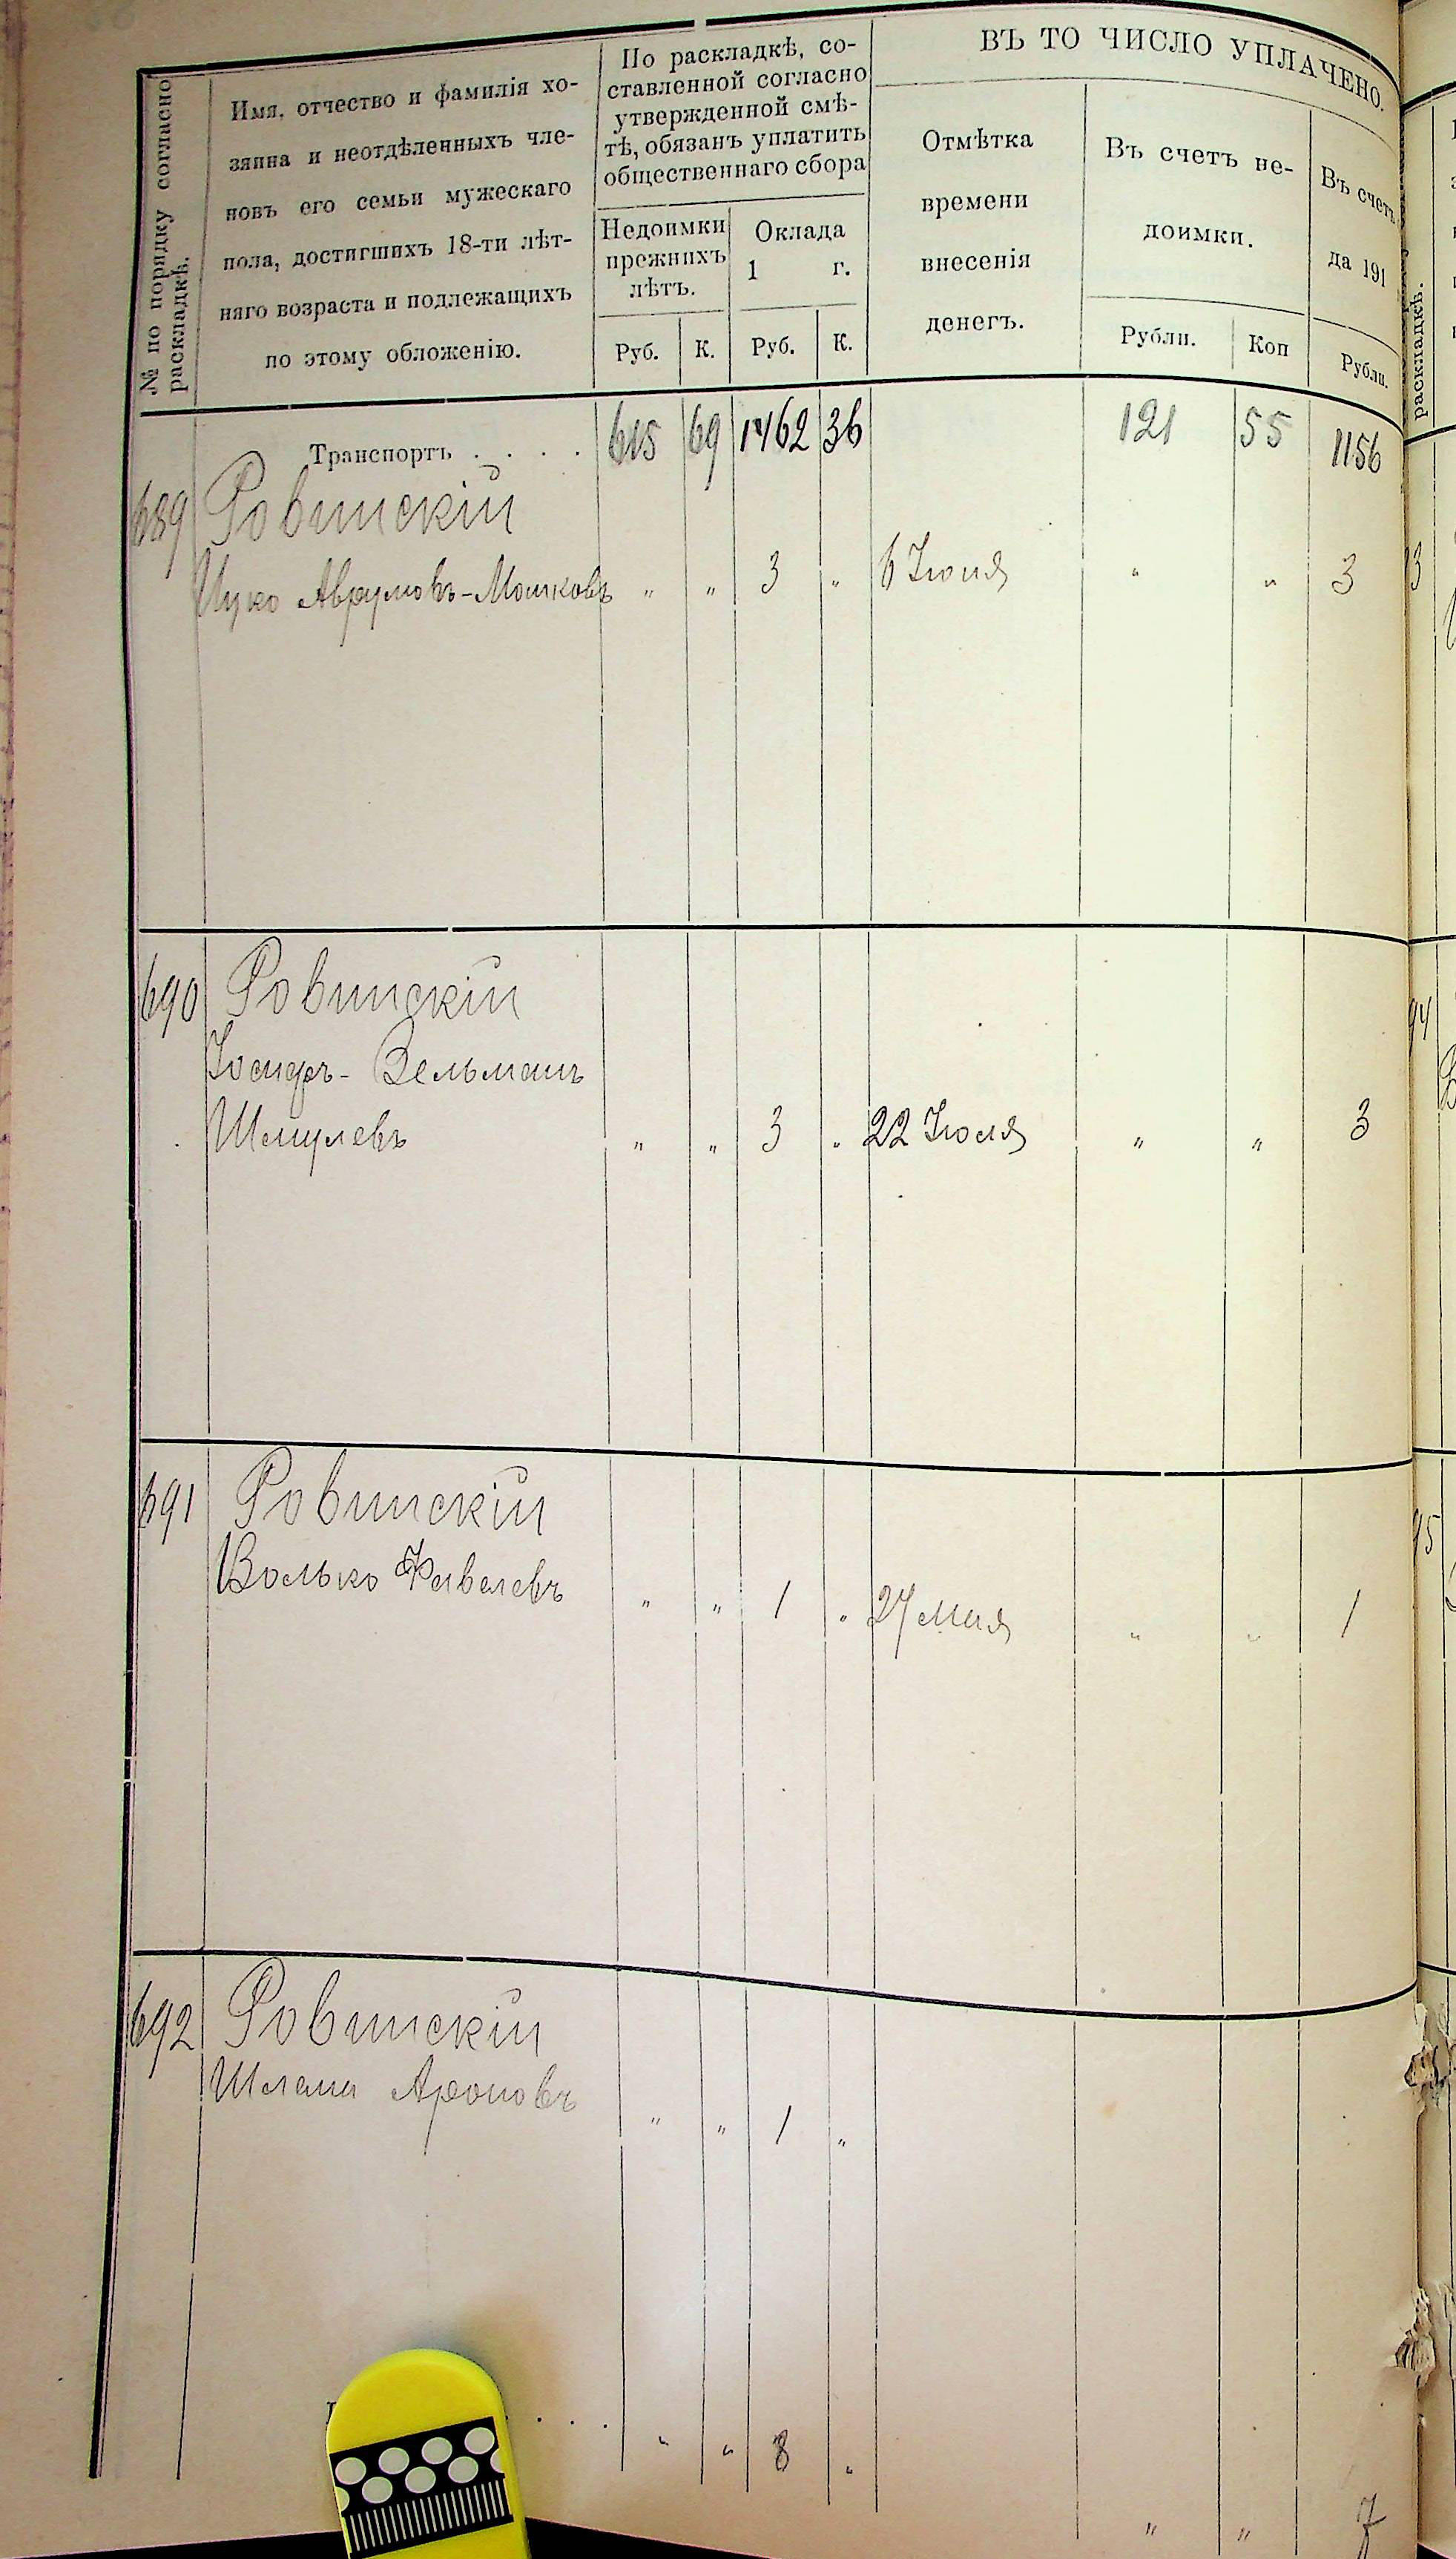 № по порядку согласно
раскладкѣ.
Имя, отчество и фамилія хо-
зяина и неотдѣленныхъ чле-
новъ его семьи мужескаго
пола, достигшихъ 18-ти лѣт-
няго возраста и подлежащихъ
по этому обложенію.
По раскладкѣ, со-
ставленной согласно
утвержденной смѣ-
тѣ, обязанъ уплатить
общественнаго сбора
Недоимки
прежнихъ
лѣтъ.
Оклада
1 г.
Руб. К. Руб. К.
ВЪ ТО ЧИСЛО УПЛАЧЕНО.
Отмѣтка
времени
внесенія
денегъ.
Въ счетъ не-
доимки.
Рубли. Коп
Въ счетъ
да 191
Рубли.
раскладкѣ.
Транспортъ . . . . 615 69 1462 36 121 55 1156
689 Ровинскій
Ицко Аврумовъ-Мошковъ " " 3 " 6 Іюня " " 3
690 Ровинскій
Іосифъ- Зельманъ
Шмулевъ " " 3 " 22 Іюля " " 3
691 Ровинскій
Волько Файвелевъ " " 1 " 27 Мая " " 1
692 Ровинскій
Шлема Ароновъ " " 1 "
. . . " " 8 "
" " 7